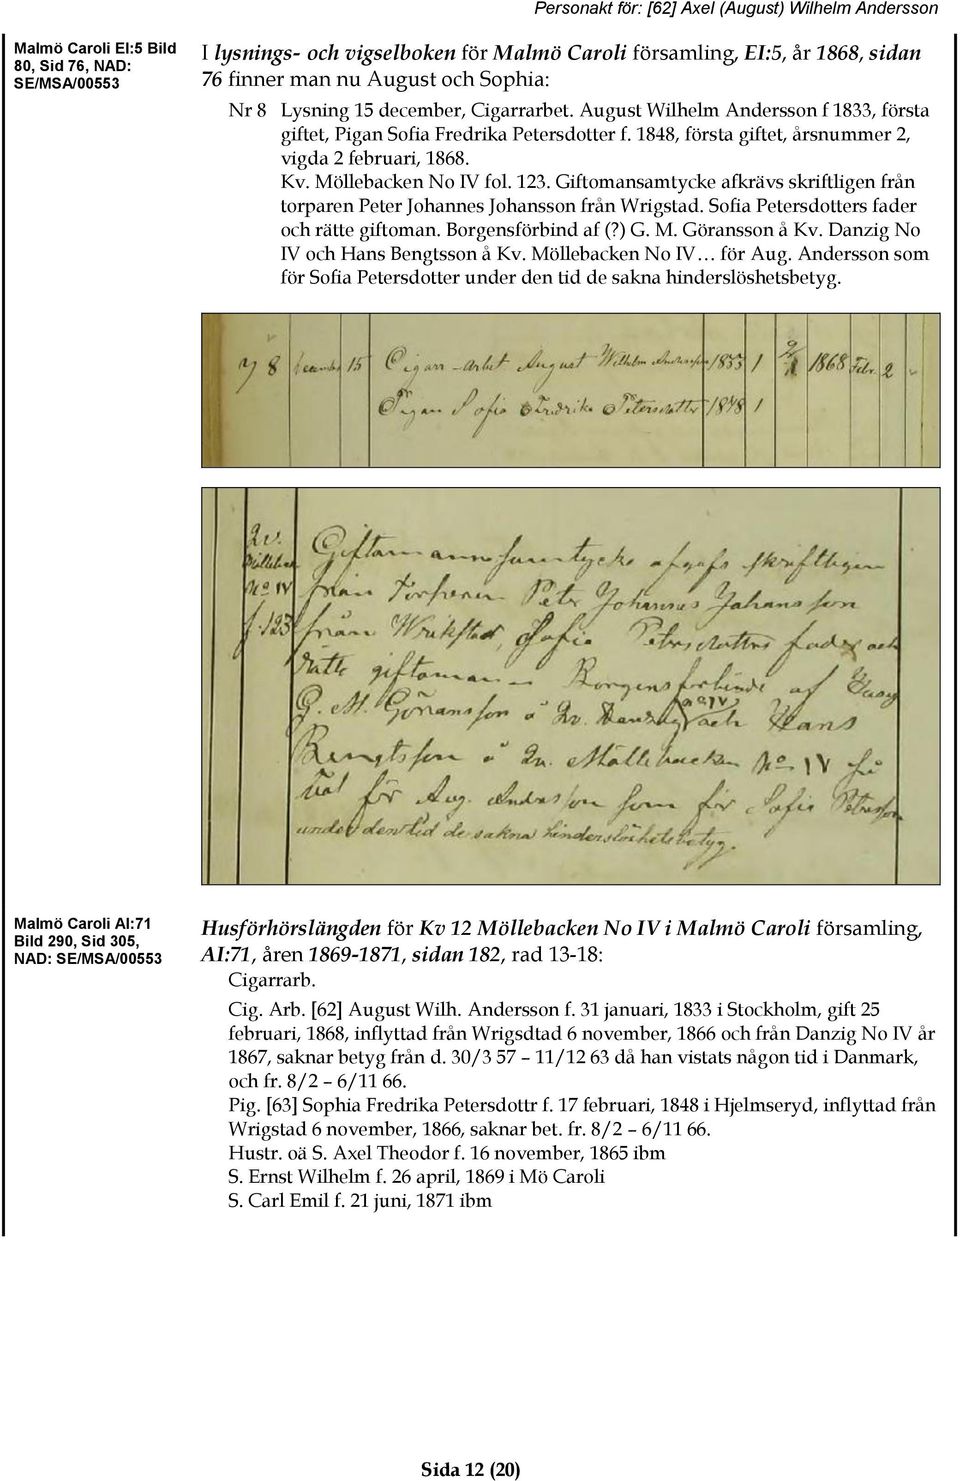 Personakt för: [62] Axel (August) Wilhelm Andersson
Malmö Caroli EI:5 Bild
80, Sid 76, NAD:
SE/MSA/00553
I lysnings- och vigselboken för Malmö Caroli församling, EI:5, år 1868, sidan
76 finner man nu August och Sophia:
Nr 8 Lysning 15 december, Cigarrarbet. August Wilhelm Andersson f 1833, första
giftet, Pigan Sofia Fredrika Petersdotter f. 1848, första giftet, årsnummer 2,
vigda 2 februari, 1868.
Kv. Möllebacken No IV fol. 123. Giftomansamtycke afkrävs skriftligen från
torparen Peter Johannes Johansson från Wrigstad. Sofia Petersdotters fader
och rätte giftoman. Borgensförbind af (?) G. M. Göransson å Kv. Danzig No
IV och Hans Bengtsson å Kv. Möllebacken No IV… för Aug. Andersson som
för Sofia Petersdotter under den tid de sakna hinderslöshetsbetyg.
8 December 15 Cigarr-arbet August Wilhelm Andersson 1833 1 1868 Febr. 2
Pigan Sofia Fredrika Petersdotter 1848 1
Qv. Giftomannasamtycke afgafs skriftligen
Målleback
No IV från Torparen Peter Johannes Johansson
f. 123 från Wrikstad, Sofia Petersdotters fader och
rätte giftoman – Borgensförbinde af
G. M. Göransson å Qv. Danzig No IV och Hans
Bengtsson å Qv. Möllebacken No IV så
väl för Aug. Andersson som för Sofia Petersson
under den tid de sakna hinderslöshetsbetyg.
Malmö Caroli AI:71
Bild 290, Sid 305,
NAD: SE/MSA/00553
Husförhörslängden för Kv 12 Möllebacken No IV i Malmö Caroli församling,
AI:71, åren 1869-1871, sidan 182, rad 13-18:
Cigarrarb.
Cig. Arb. [62] August Wilh. Andersson f. 31 januari, 1833 i Stockholm, gift 25
februari, 1868, inflyttad från Wrigsdtad 6 november, 1866 och från Danzig No IV år
1867, saknar betyg från d. 30/3 57 – 11/12 63 då han vistats någon tid i Danmark,
och fr. 8/2 – 6/11 66.
Pig. [63] Sophia Fredrika Petersdottr f. 17 februari, 1848 i Hjelmseryd, inflyttad från
Wrigstad 6 november, 1866, saknar bet. fr. 8/2 – 6/11 66.
Hustr. oä S. Axel Theodor f. 16 november, 1865 ibm
S. Ernst Wilhelm f. 26 april, 1869 i Mö Caroli
S. Carl Emil f. 21 juni, 1871 ibm
Sida 12 (20)